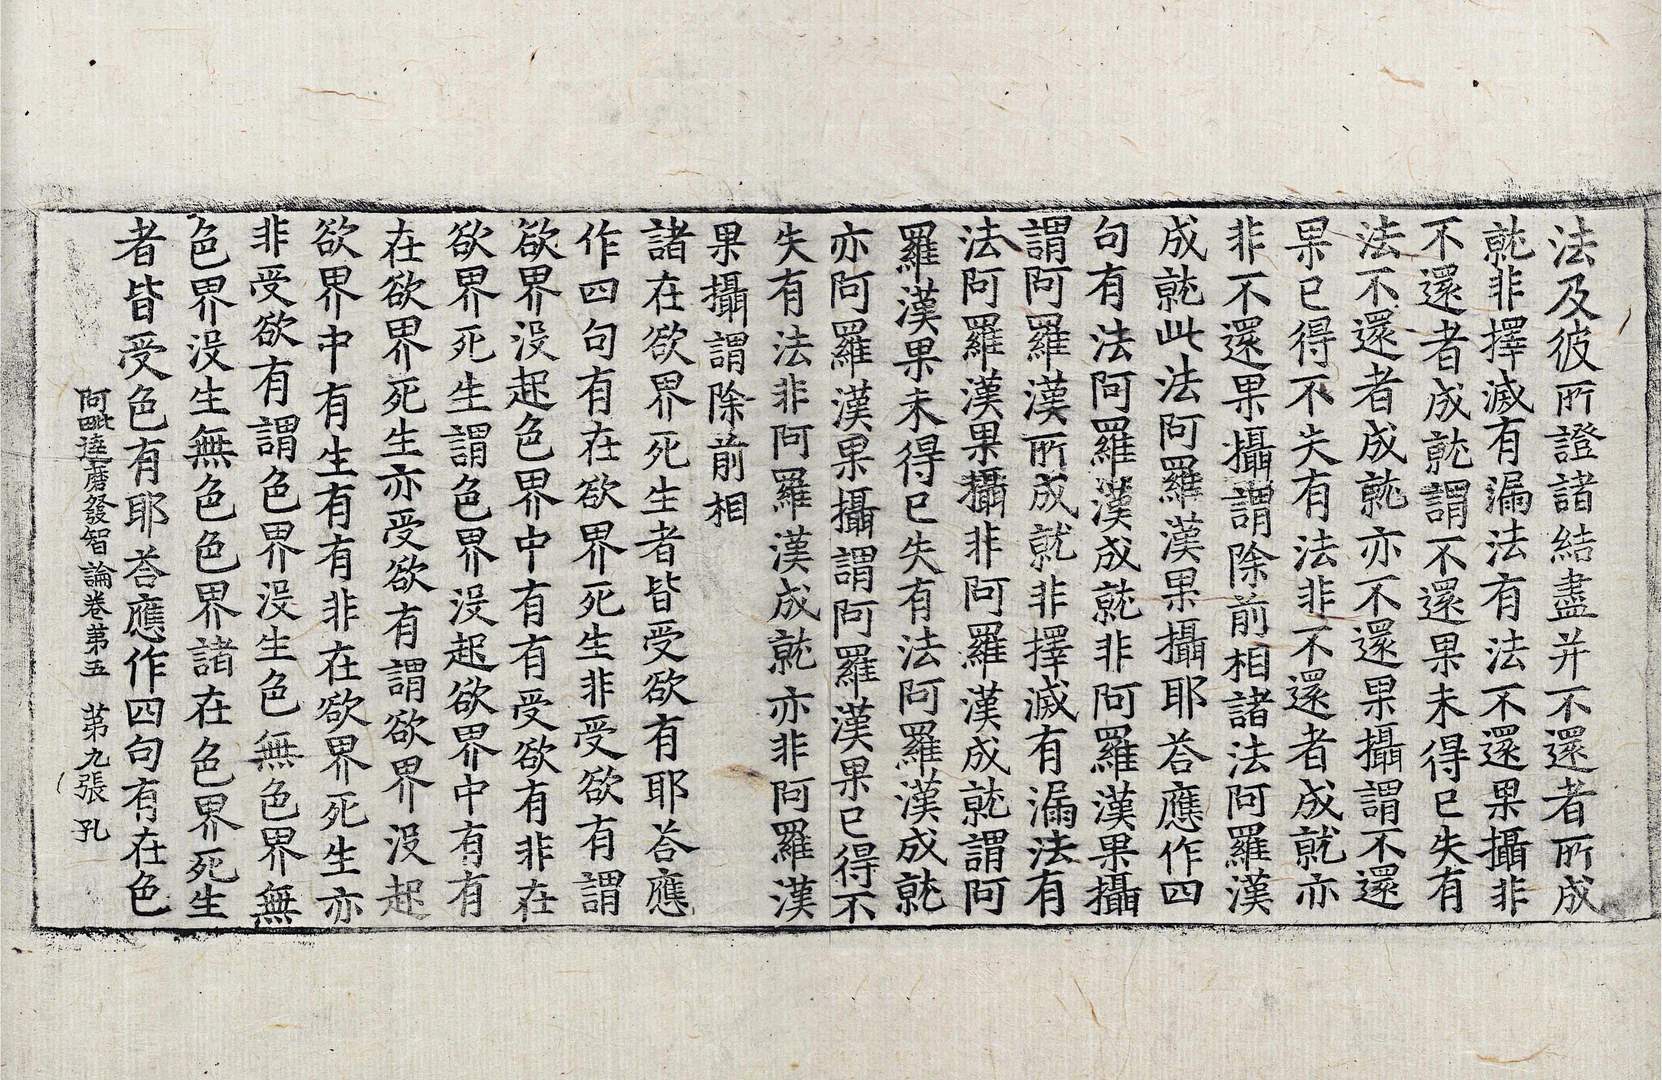 法及彼所證諸結盡并不還者所成
就非擇滅有漏法有法不還果攝非
不還者成就謂不還果未得已失有
法不還者成就亦不還果攝謂不還
果已得不失有法非不還者成就亦
非不還果攝謂除前相諸法阿羅漢
成就此法阿羅漢果攝耶荅應作四
句有法阿羅漢成就非阿羅漢果攝
謂阿羅漢所成就非擇滅有漏法有
法阿羅漢果攝非阿羅漢成就謂阿
羅漢果未得已失有法阿羅漢成就
亦阿羅漢果攝謂阿羅漢果已得不
失有法非阿羅漢成就亦非阿羅漢
果攝謂除前相
諸在欲界死生者皆受欲有耶荅應
作四句有在欲界死生非受欲有謂
欲界没起色界中有有受欲有非在
欲界死生謂色界没起欲界中有有
在欲界死生亦受欲有謂欲界没起
欲界中有生有有非在欲界死生亦
非受欲有謂色界没生色無色界無
色界没生無色色界諸在色界死生
者皆受色有耶荅應作四句有在色
阿毗達磨發智論卷第五　第九張　孔